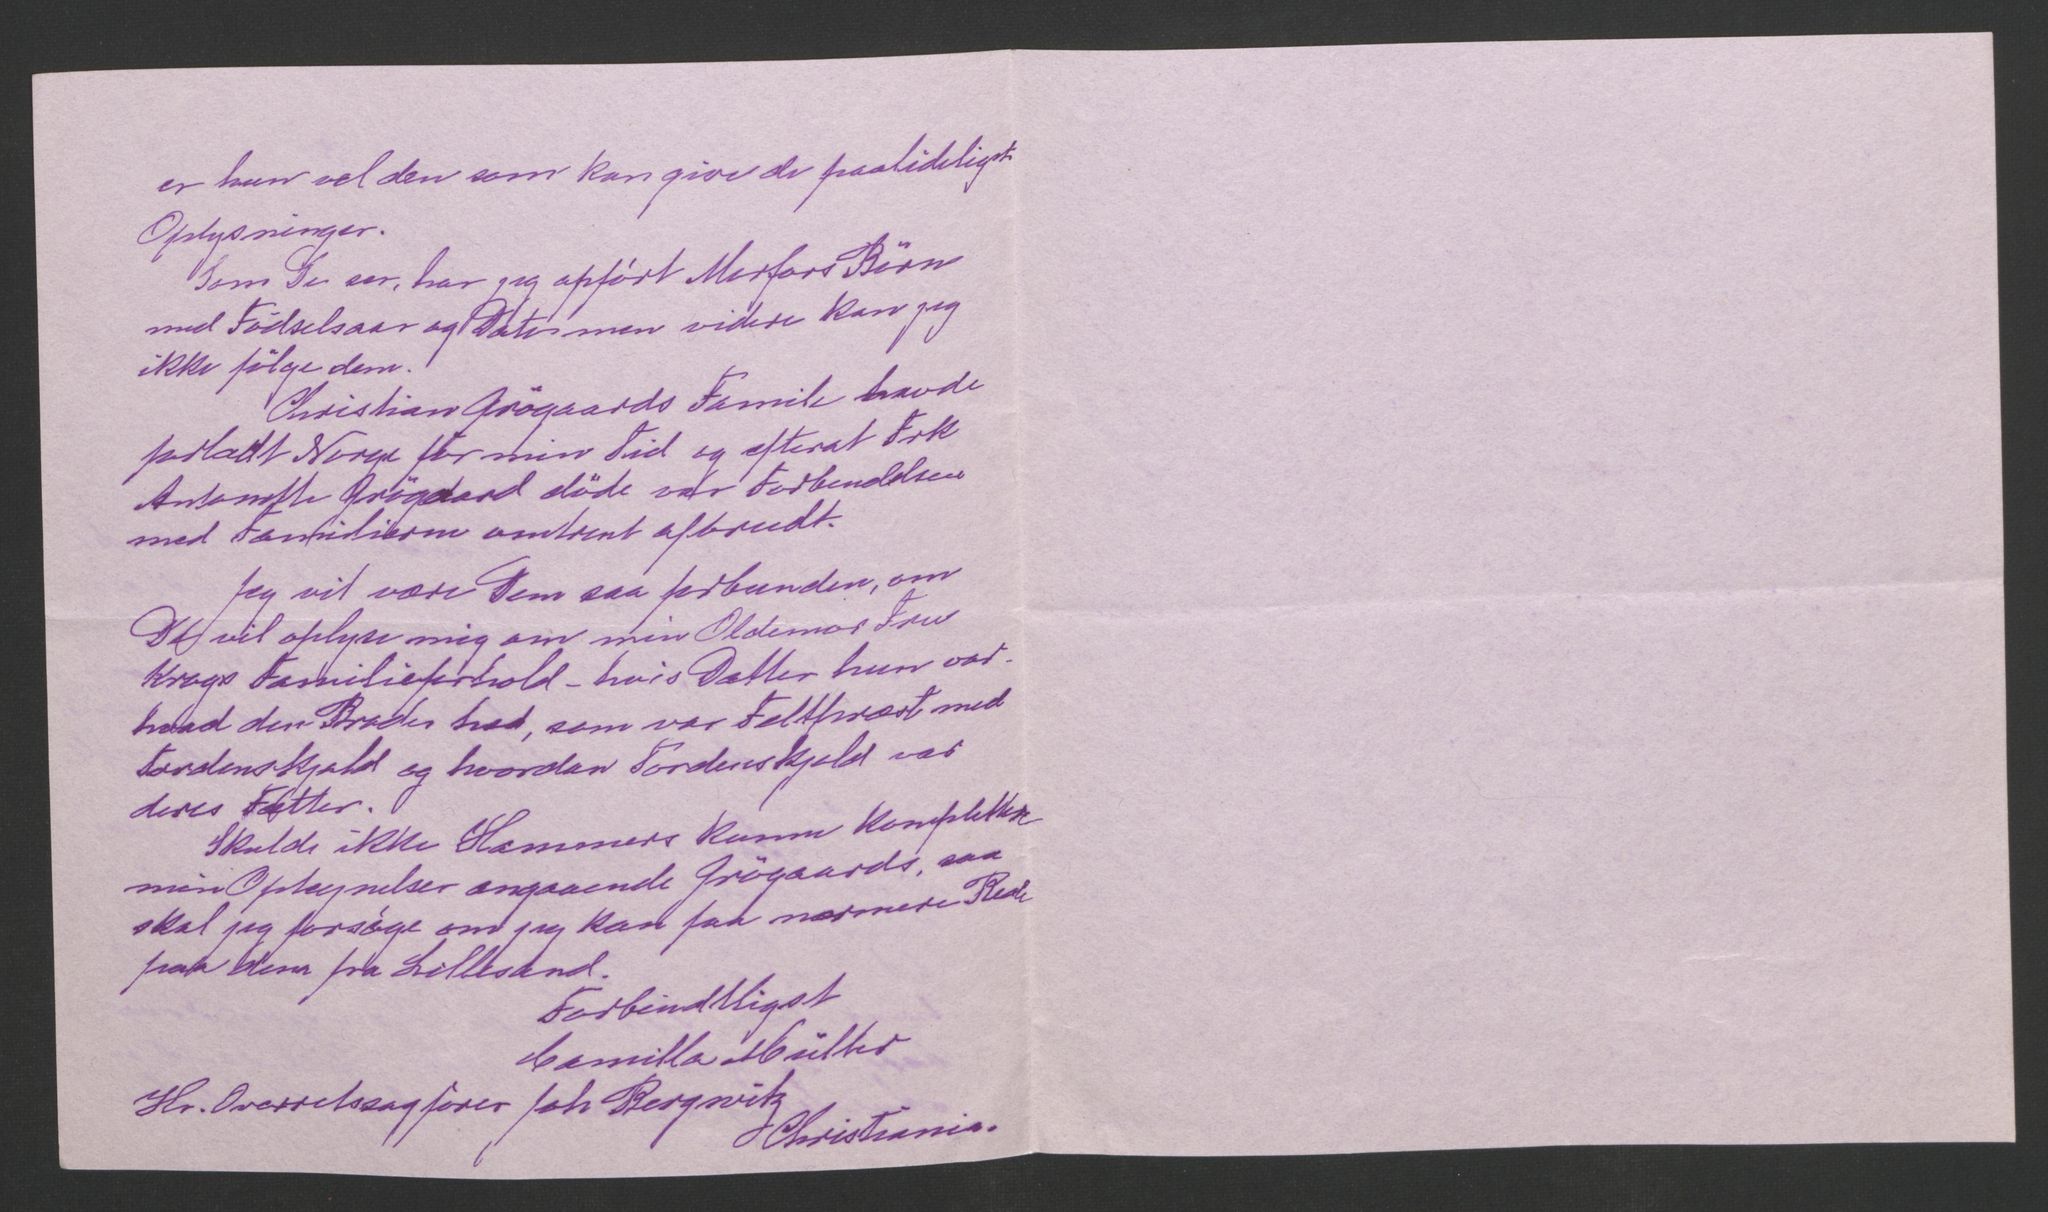 er hun vel den som kan give de paalideligste
Oplysninger.
Som De ser, har jeg opført Morfars Börn
med Födselsaar og Dato men videre kan jeg
ikke fölge dem.
Christian Grögaards Famile havde
forladt Norge för min Tid og efterat Frk
Antonette Grögaard döde var Forbindelsen
med Familierne omtrent afbrudt.
Jeg vil være Dem saa forbunden, om
De vil oplyse mig om min Oldemor Fru
Krags Familieforhold - hvis Datter hun var -
hvad den Broder hed, som var Feltpræst med
Tordenskjold og hvordan Tordenskjold var
deres Fætter.
Skulde ikke Hammers kunne komplettere
min Optegnelser angaaende Grögaards, saa
skal jeg forsöge om jeg kan faa nærmere Rede
paa dem fra Lillesand.
Forbindtligst
Camilla Müller
Hr. Overretssagförer Joh Bergwitz
Christiania.